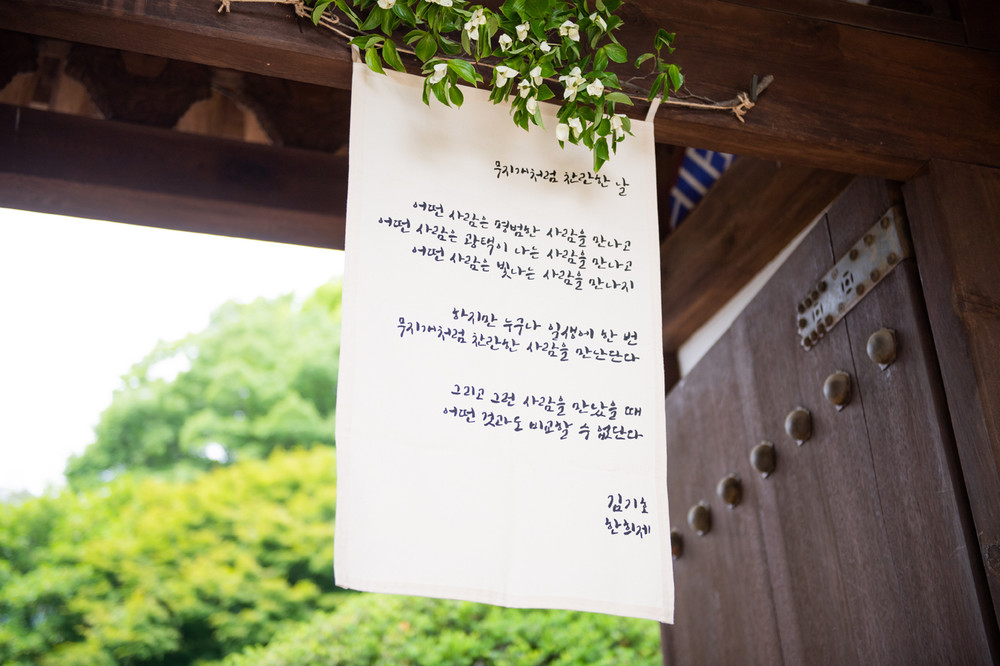 무지개처럼 찬란한 날
어떤 사람은 평범한 사람을 만나고
어떤 사람은 광택이 나는 사람을 만나고
어떤 사람은 빛나는 사람을 만나지
하지만 누구나 일생에 한 번
무지개처럼 찬란한 사람을 만난단다
그리고 그런 사람을 만났을 때
어떤 것과도 비교할 수 없단다
김기호
한희제